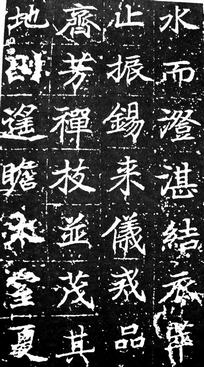 水而澄湛結
止振錫来儀戒品
齊芳禪枝並茂其
地則遥瞻